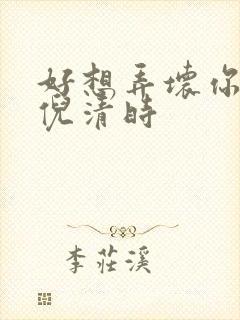 好想弄坏你
倪清时
李莊溪